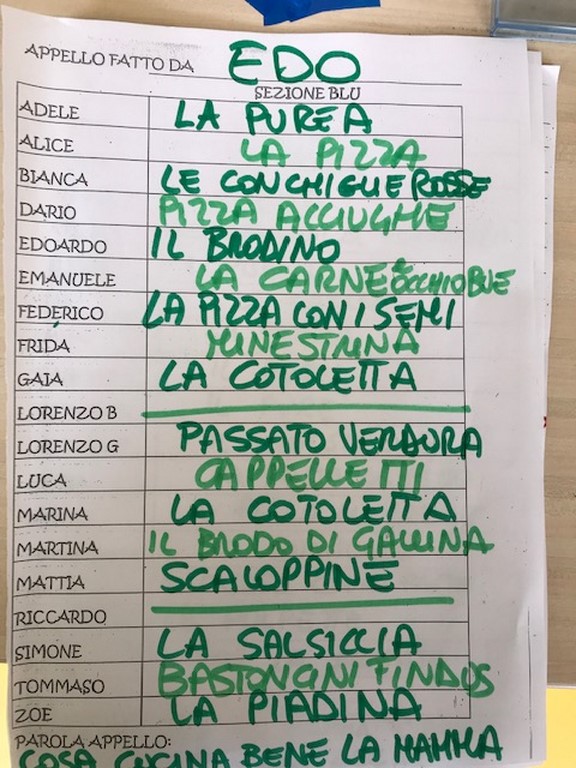 APPELLO FATTO DA EDO
SEZIONE BLU
ADELE LA PUREA
ALICE LA PIZZA
BIANCA LE CONCHIGLIE ROSSE
DARIO PIZZA ACCIUGHE
EDOARDO IL BRODINO
EMANUELE LA CARNE OCCHIO BUE
FEDERICO LA PIZZA CON I SEMI
FRIDA MINESTRINA
GAIA LA COTOLETTA
LORENZO B
LORENZO G PASSATO VERDURA
LUCA CAPPELLETTI
MARINA LA COTOLETTA
MARTINA IL BRODO DI GALLINA
MATTIA SCALOPPINE
RICCARDO
SIMONE LA SALSICCIA
TOMMASO BASTONCINI FINDUS
ZOE LA PIADINA
PAROLA APPELLO:
COSA CUCINA BENE LA MAMMA